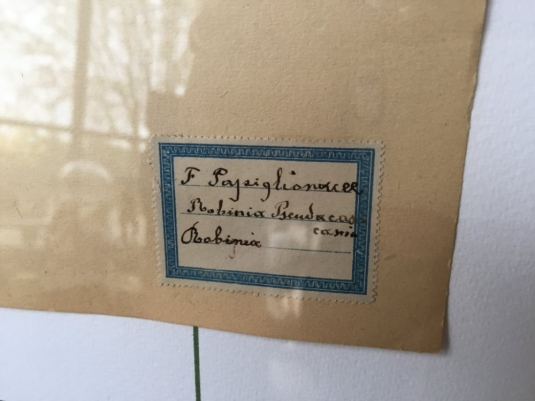 F Papiglionacee
Robinia Pseudacas
cania
Robinia